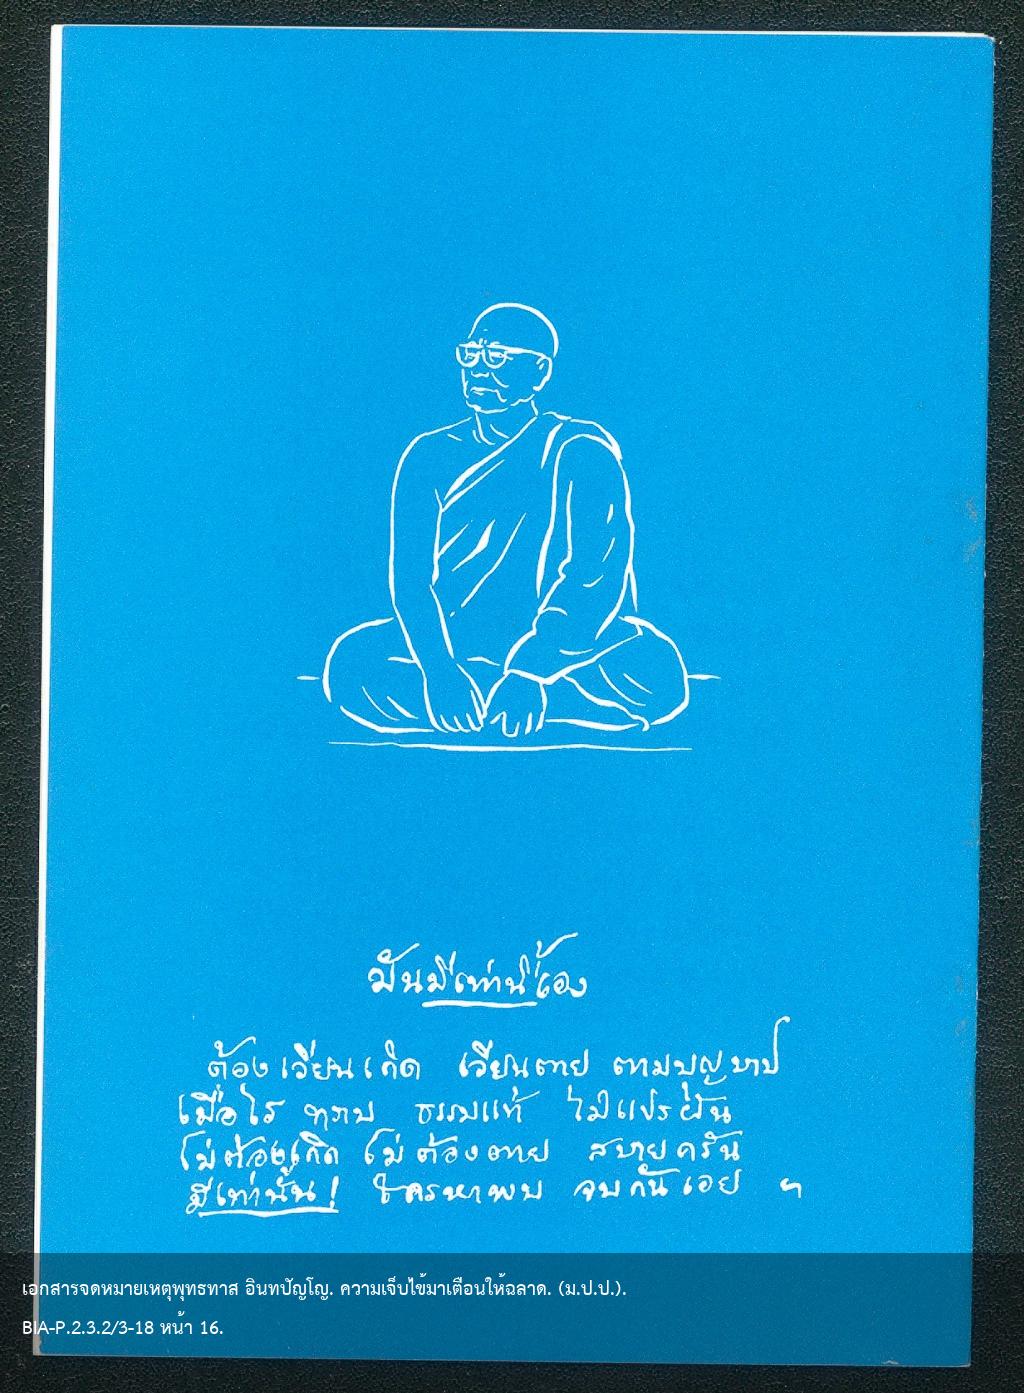 มันมีเท่านี้เอง
ต้องเวียนเกิด เวียนตาย ตามบุญบาป
เมื่อไร ทราบ ธรรมแท้ ไม่แปรผัน
ไม่ต้องเกิด ไม่ต้องตาย สบายครัน
มีเท่านั้น! ใครหาพบ จบกันเอย ฯ
เอกสารจดหมายเหตุพุทธทาส อินทปัญโญ. ความเจ็บไข้มาเตือนให้ฉลาด. (ม.ป.ป.).
BIA-P.2.3.2/3-18 หน้า 16.